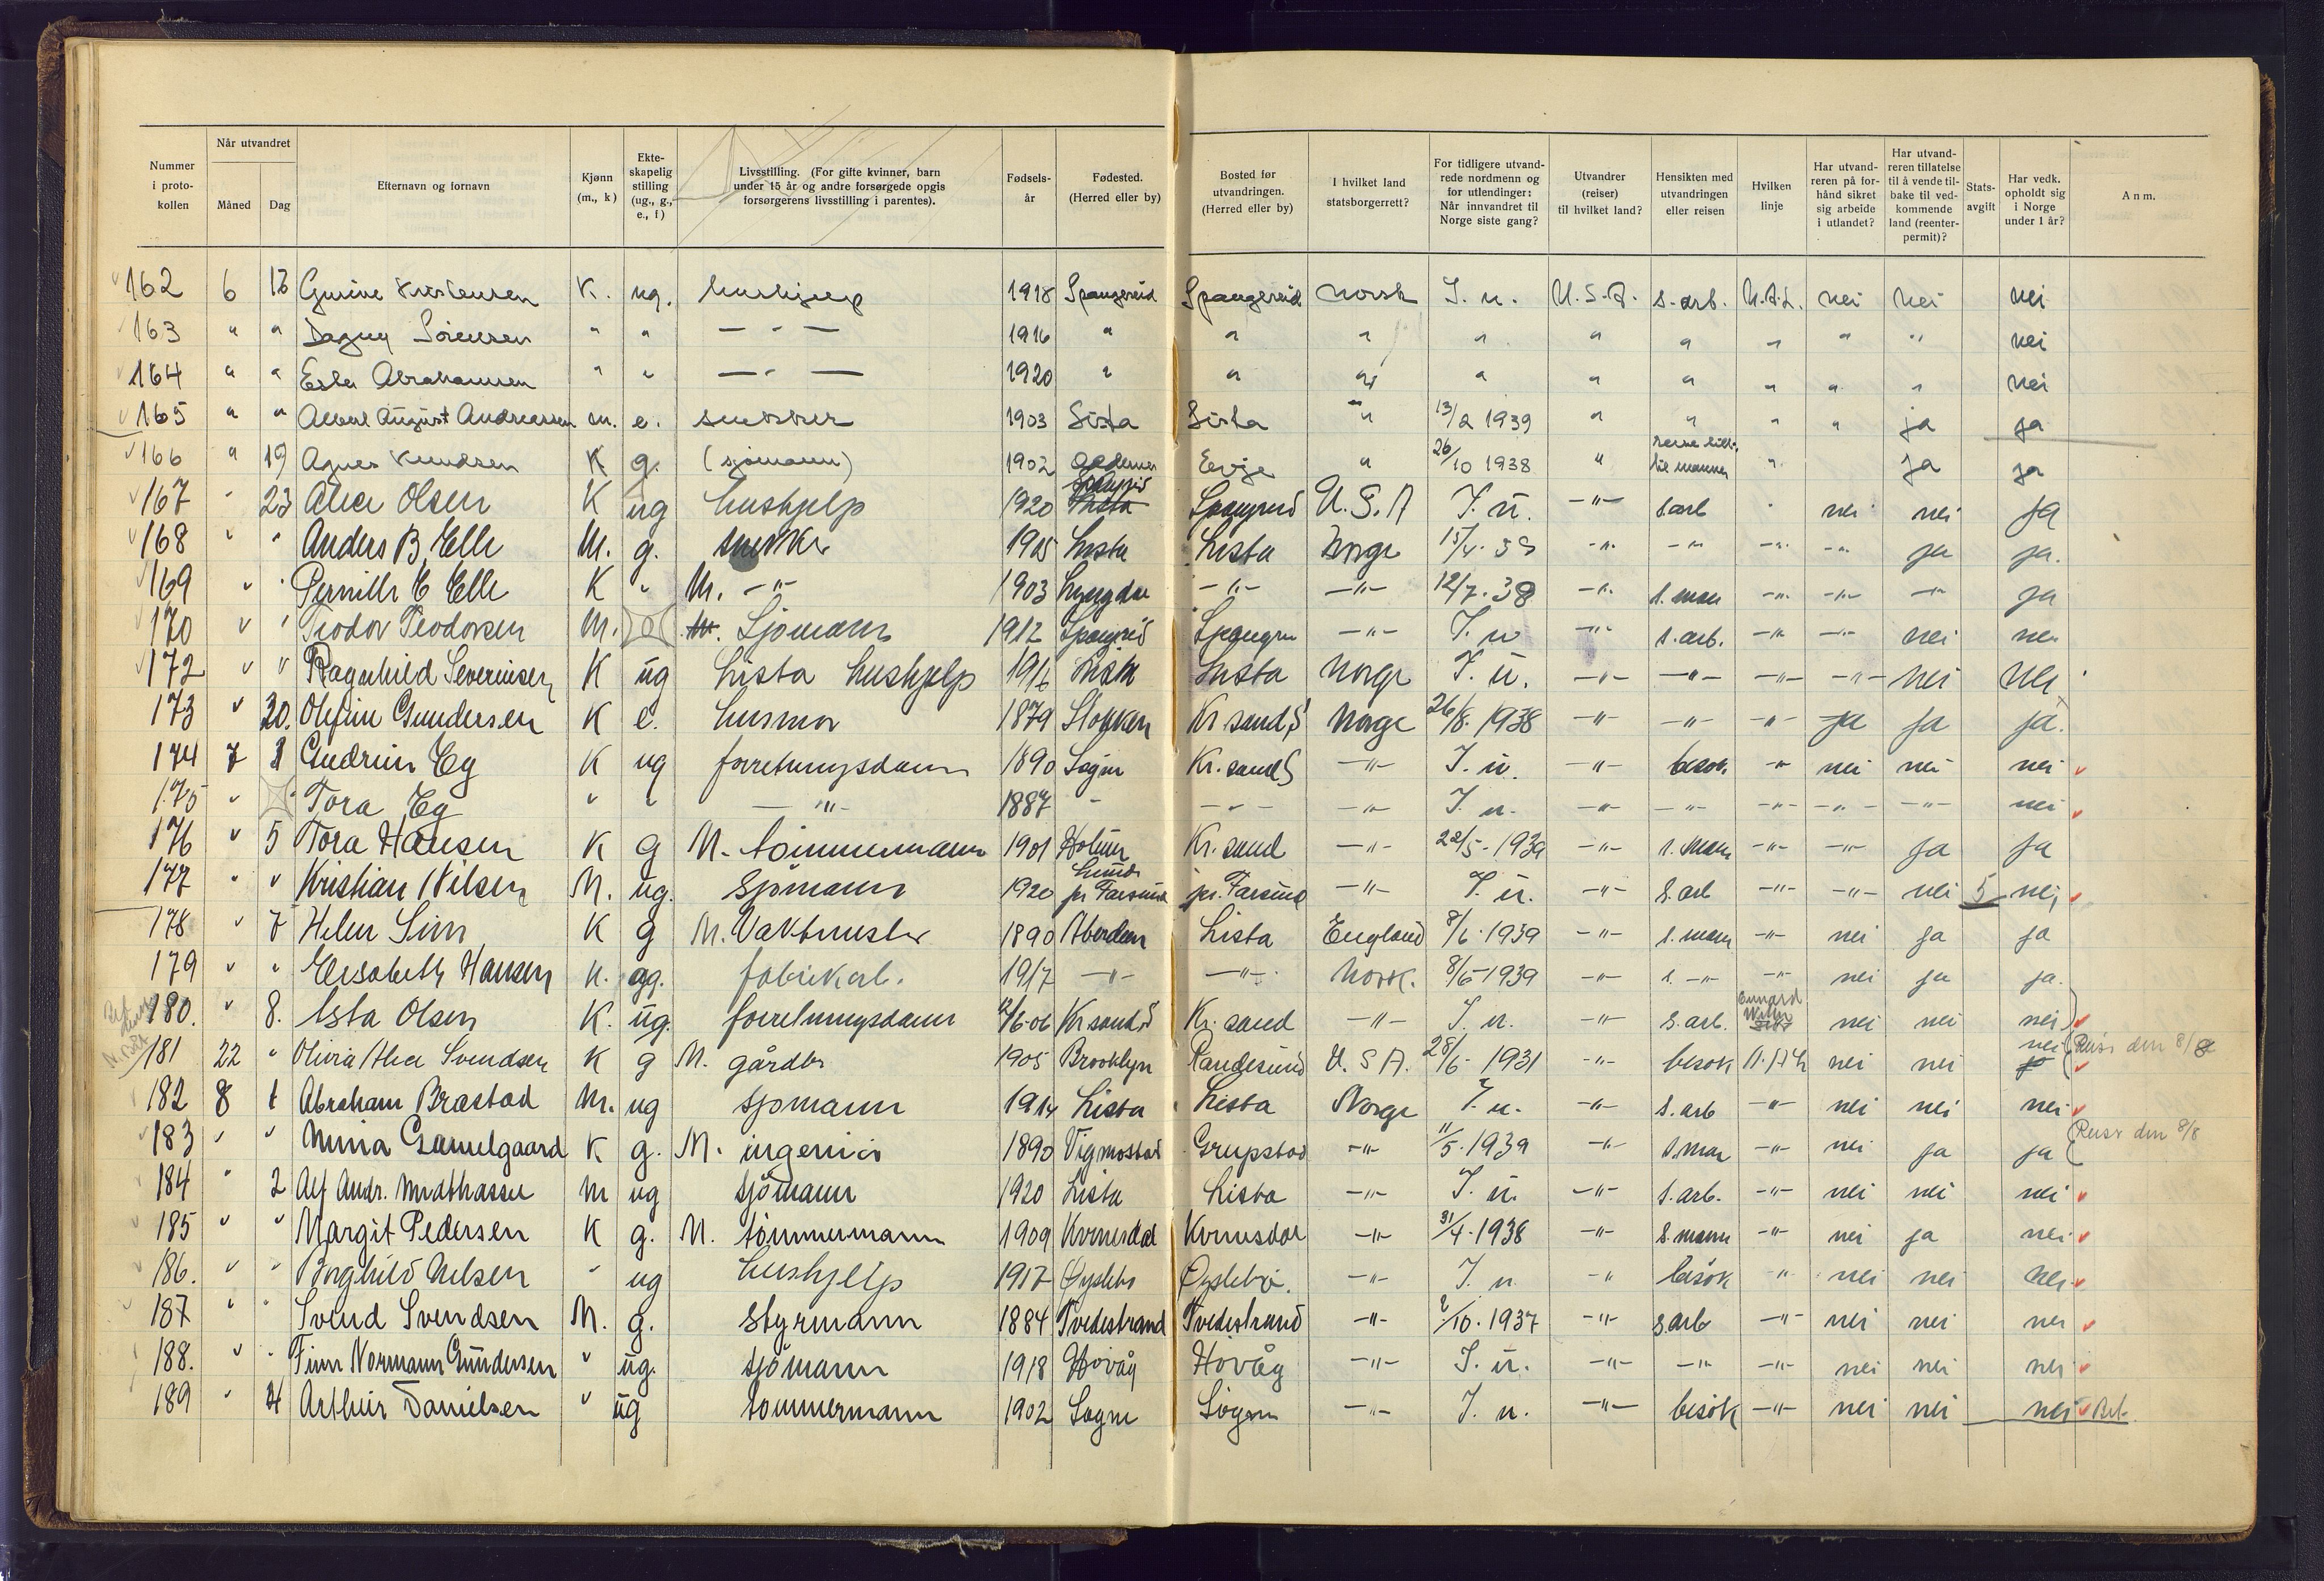 Nummer i proto-kollen | Når utvandret Måned Dag | Efternavn og fornavn | Kjønn (m., k) | Ekte-skapelig stilling (ug., g., e., f) | Livsstilling. (For gifte kvinner, barn under 15 år og andre forsørgede opgis forsørgerens livsstilling i parentes). | Fødsels-år | Fødested. (Herred eller by) | Bosted før utvandringen. (Herred eller by) | I hvilket land statsborgerrett? | For tidligere utvand-rede nordmenn og for utlendinger: Når innvandret til Norge siste gang? | Utvandrer (reiser) til hvilket land? | Hensikten med utvandringen eller reisen | Hvilken linje | Har utvand-reren på for-hånd sikret sig arbeide i utlandet? | Har utvand-reren tillatelse til å vende til-bake til ved-kommende land (reenter-permit)? | Stats-avgift | Har vedk. opholdt sig i Norge under 1 år? | Anm.
162 6 Kristensen K. ug. hushjelp 1918 Spangereid Spangereid norsk I. u. U.S.A. s. arb. nei nei nei
163 " " Dagny Sørensen " " — " — 1916 " " " " " " " " " nei
164 " " Abrahamsen " " — " — 1920 " " " " " " " " " nei
165 " " August Andreassen m. e. snekker 1903 Lista Lista " 13/2 1939 " " " " ja ja
166 " 19 Agnes Knudsen K g. (sjømann) 1902 Evje " 26/10 1938 " til mannen " ja ja
167 " 23 Olsen K ug hushjelp 1920 U.S.A I. u. -"- s.arb " nei nei ja
168 " " Anders B. Elle M. g. Lista Lista Norge -"- -"- -"- -"- ja ja.
169 " " E Elle K " M. -"- 1903 -"- -"- 12/7. 38 -"- s. man -"- -"- -"- ja
170 " " Teodor Teodorsen M. Sjømann 1912 -"- I. u -"- s. arb. -"- -"- nei nei
172 " " Ragnhild Severinsen K ug Lista hushjelp 1916 Lista Lista Norge I. u. -"- -"- -"- -"- nei nei
173 " 30. Gundersen K e. husmor 1879 Kr sand S Norge 26/8. 1938 -"- -"- -"- ja ja ja.
174 7 1 Gudrun Eg K ug forretningsdame 1890 Sogne Kr. sand S -"- I. u. -"- besøk -"- nei nei nei
175 " Tora Eg " " -"- 1887 - -"- -"- I. u. -"- -"- -"- -"- -"- nei
176 " 5 Tora Hansen K g M. tømmermann 1901 Holum Kr. sand -"- 22/5-1939 -"- s. mann -"- -"- ja ja
177 " " Kristian Nilsen M. ug. sjømann 1920 pr Farsund pr. Farsund -"- I. u. -"- s. arb -"- -"- nei 5 nei
178 " 7 Helen Sim K g M. Vaktmester 1890 Aberdeen Lista England 8/6. 1939 -"- s. mann -"- nei ja ja
179 " " Elisabeth Hansen K. fabrikarb. 1917 -"- -"- norsk. 8/6-1939 -"- s. -"- -"- nei ja ja.
180. " 8. Asta Olsen K. ug. forretningsdame Kr sand S Kr. sand -"- I. u. -"- s. arb. nei nei nei
181 22 " Olivia Alice Svendsen K g M. gårdbr 1905 Brooklyn Randesund U. S A. 28/6 1931 -"- besøk nei nei nei Reiser den 8/8
182 8 1 Abraham Brastad M. ug sjømann 1914 Lista Lista Norge I. u. -"- s. arb -"- nei nei nei
183 " " K g. M. ingeniør 1890 Vigmostad -"- 11/5. 1939 -"- s. man -"- nei ja ja Reiser den 8/8
184 " 2 Alf Andr. m ug sjømann 1920 Lista Lista -"- I. u. -"- s. arb. -"- nei nei nei
185 " " Margit Pedersen K g. M. tømmermann 1909 Kvinesdal Kvinesdal -"- 31/4. 1938 -"- s. mann -"- nei ja nei
186. " " Borghild Nilsen " ug hushjelp 1917 Øyslebø Øyslebø. -"- I. u -"- besøk " nei nei nei
187 " " Svend Svendsen M. g. styrmann 1884 Tvedestrand Tvedestrand -"- 2/10. 1937 -"- s. arb -"- nei nei nei
188. " " Finn Normann Gundersen " ug. sjømann 1918 Høvåg Høvåg -"- I. u. -"- -"- -"- nei nei nei
189 " 4 Arthur Danielsen " ug tømmermann 1902 Søgne Søgne -"- I. u. -"- besøk -"- nei nei nei